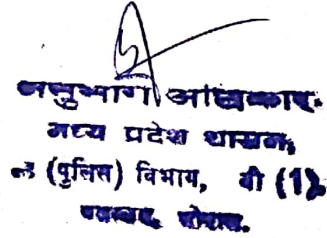 अनुभाग अधिकारी
मध्य प्रदेश शासन,
(पुलिस) विभाग, बी (1)
भोपाल.